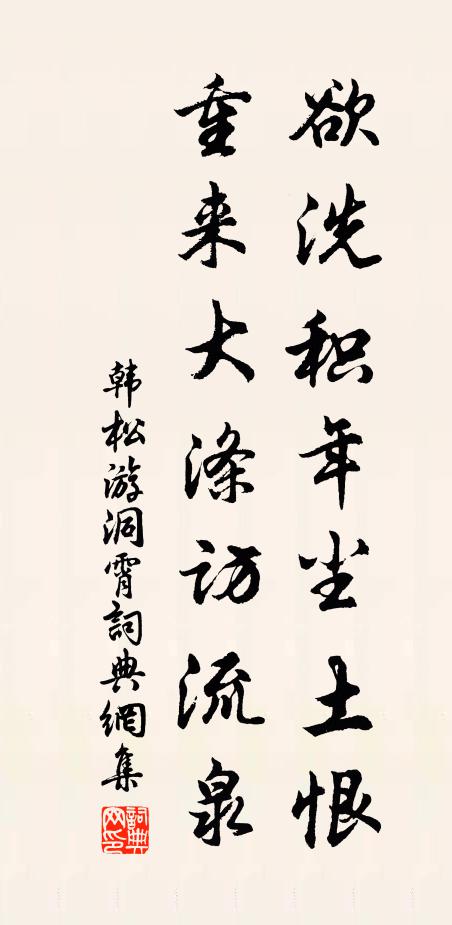 欲洗积年尘土恨
重来大涤访流泉
韩松游洞霄詞典網集
詞典网印